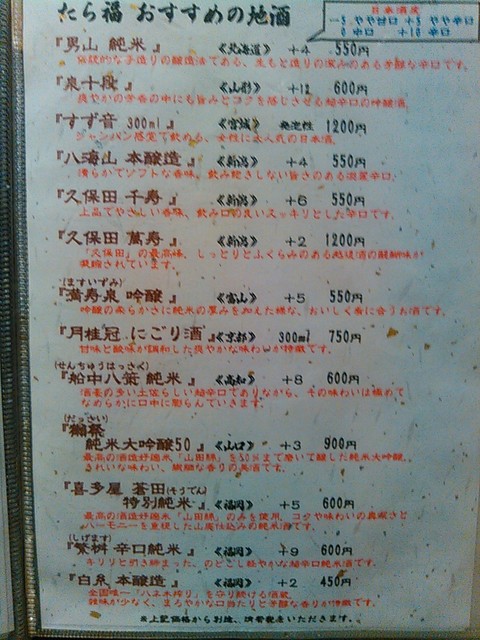 たら福 おすすめの地酒
日本酒度
-5 やや甘口 +5 やや辛口
0 中口 +10 辛口
『男山 純米』 《北海道》 +4 550円
伝統的な手造りの醸造法である、生もと造りの深みのある芳醇な辛口です。
『泉十段』 《山形》 +12 600円
爽やかな芳香の中にも旨みとコクを感じさせる超辛口の吟醸酒。
『すず音 300ml』 《宮城》 発泡性 1200円
シャンパン感覚で飲める、女性に大人気の日本酒。
『八海山 本醸造』 《新潟》 +4 550円
清らかでソフトな香味、飲み飽きしない旨さのある淡麗辛口。
『久保田 千寿』 《新潟》 +6 550円
上品でやさしい香味、飲み口の良いスッキリとした辛口です。
『久保田 萬寿』 《新潟》 +2 1200円
「久保田」の最高峰、しっとりとふくらみのある
凝縮されています。
(ますいずみ)
『満寿泉 吟醸』 《富山》 +5 550円
吟醸の柔らかさに純米の厚みを加えた様な、おいしく肴に合うお酒です。
『月桂冠 にごり酒』 《京都》 300ml 750円
甘味と酸味が調和した爽やかな味わいが特徴です。
(せんちゅうはっさく)
『船中八策 純米』 《高知》 +8 600円
酒豪の多い土佐らしい超辛口でありながら、その味わいは極めて
なめらかに口中に膨らんでいきます。
(だっさい)
『獺祭
純米大吟醸50』 《山口》 +3 900円
最高の酒造好適米「山田錦」を50%まで磨いて醸した純米大吟醸。
きれいな味わい、繊細な香りの美酒です。
『喜多屋 蒼田(そうでん)
特別純米』 《福岡》 +5 600円
最高の酒造好適米「山田錦」のみを使用、コクや味わいの奥深さと
ハーモニーを重視した山廃仕込みの純米酒です。
(しげます)
『繁桝 辛口純米』 《福岡》 +9 600円
キリリと引き締まった、のどごし軽やかな超辛口純米酒です。
『白糸 本醸造』 《福岡》 +2 450円
全国唯一「ハネ木搾り」を守り続ける酒蔵。
雑味が少なく、まろやかな口当たりと芳醇な香りが特徴です。
※上記価格から別途、消費税をいただきます。